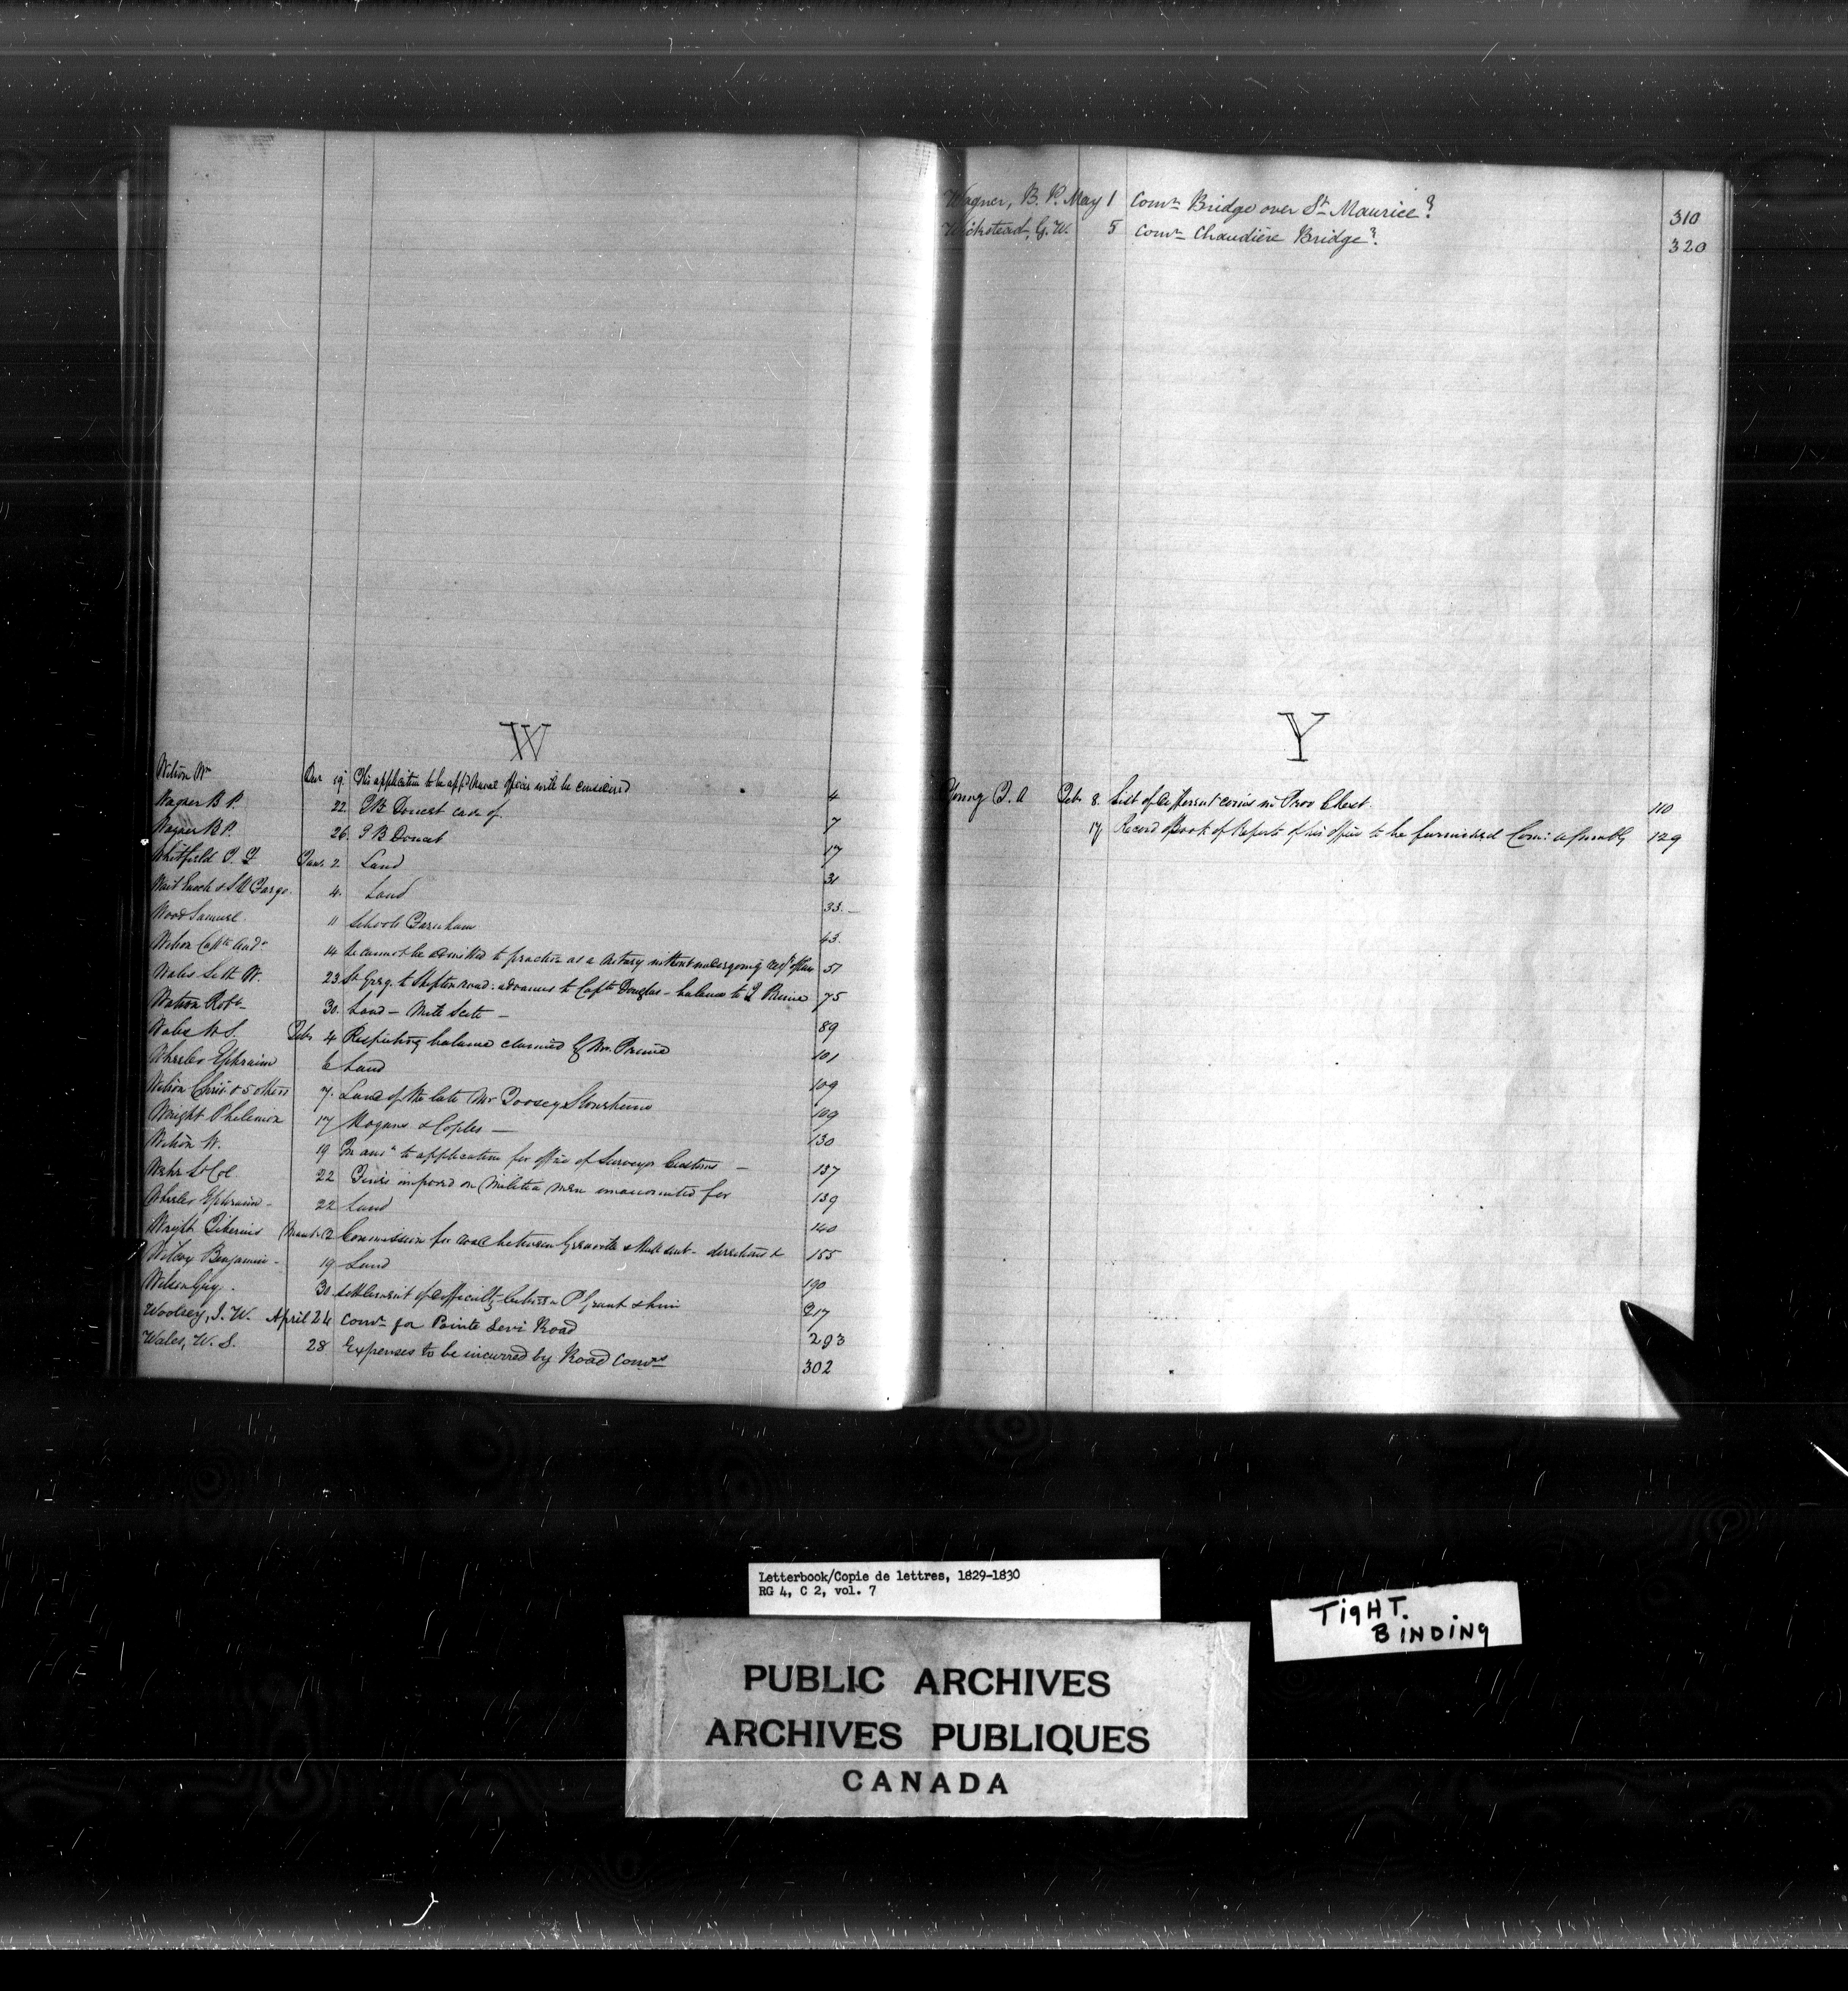 W
Wilson Wm Decr 19. His application to be appd Naval Officer will be considered 4
Wagner B P. 22. J B Doucet case of 7
Wagner B P. 26. J B Doucet 17
Whitfield Jany 2 Land 31
Wait Enoch & 4. Land 33.
Wood Samuel 11 Schools Farnham 43.
Wilson Captn Andw 14 He cannot be admitted to practice as a Notary without undergoing 51
Wales Seth W. 23. St Greg. to Shipton road: advances to Captn Douglas - balance to 75
Watson Robt 30. Land - Mill Seite - 89
Wales W S. Feby 4 Respecting balance claimed by Mr. 101
Wheeler Ephraim 6 Land 109
Wilson Christ & 5 others 7. Land of the late Mr Toosey Stoneham 109
Wright Philemon 17 & Copies - 130
Wilson W. 19 In ansr to application for office of Surveyor Customs - 137
Lt Col 22 Fines imposed on Militia Men unaccounted for 139
Wheeler Ephraim - 22 Land 140
Wright Tiberius March 12 Commission for road between Grenville & Hull sent - directions & 155
Wilcox Benjamin - 19 Land 190
Wilson Guy. 30 Settlement of difficulty between P Grant & him 217
Woolsey, J. W. April 24 Comr for Pointe Levi Road 293
Wales, W. S. 28 Expenses to be incurred by Road Comrs 302
Wagner, B. P. May 1 Comr Bridge over St Maurice? 310
Wickstead, G. W. 5 Comr Chaudière Bridge?. 320
Y
Young T. A Feby 8. List of different coins in Prov Chest. 110
17 Record Book of Reports of his office to be furnished Com: Assembly 129
Letterbook/Copie de lettres, 1829-1830
RG 4, C 2, vol. 7
TIGHT.
BINDING
PUBLIC ARCHIVES
ARCHIVES PUBLIQUES
CANADA